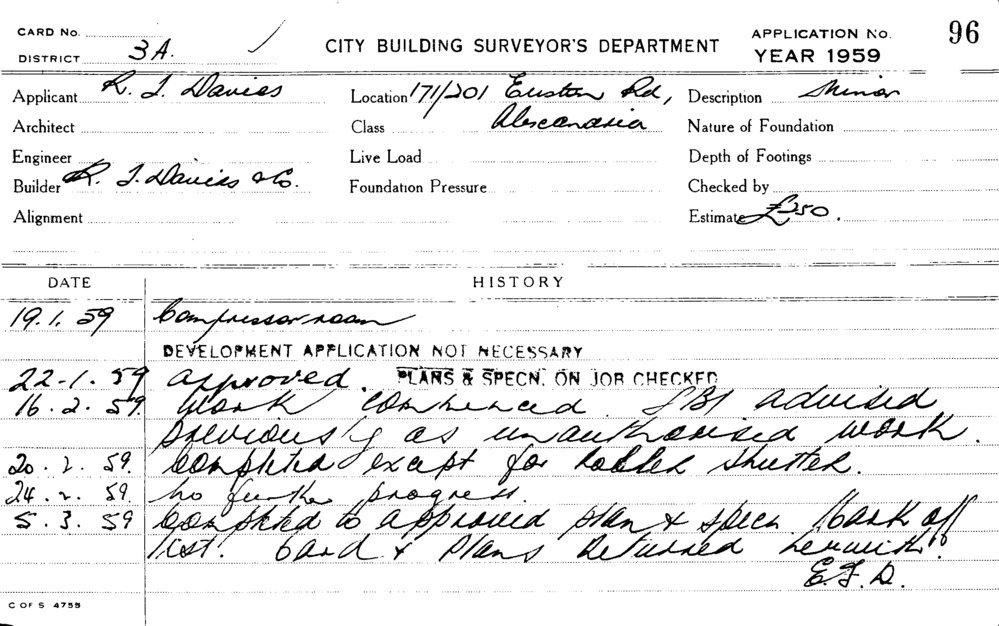 CARD No.
DISTRICT 3A.
CITY BUILDING SURVEYOR'S DEPARTMENT
APPLICATION No. 96
YEAR 1959
Applicant R. J. Davies
Location 171/201 Euston Rd,
Description Minor
Architect
Class Alexandria
Nature of Foundation
Engineer
Live Load
Depth of Footings
Builder R. J. Davies & Co.
Foundation Pressure
Checked by
Alignment
Estimate £250.
DATE HISTORY
19.1.59 Compressor room
DEVELOPMENT APPLICATION NOT NECESSARY
22-1.59 Approved. PLANS & SPECN. ON JOB CHECKED
16.2.59. Work commenced. advised
previously as unauthorised work.
20.2.59. Completed except for roller shutter.
24.2.59. No further progress.
5.3.59 Completed to approved plan & specn Mark off
list. Card & Plans returned herewith.
C OF S 4755